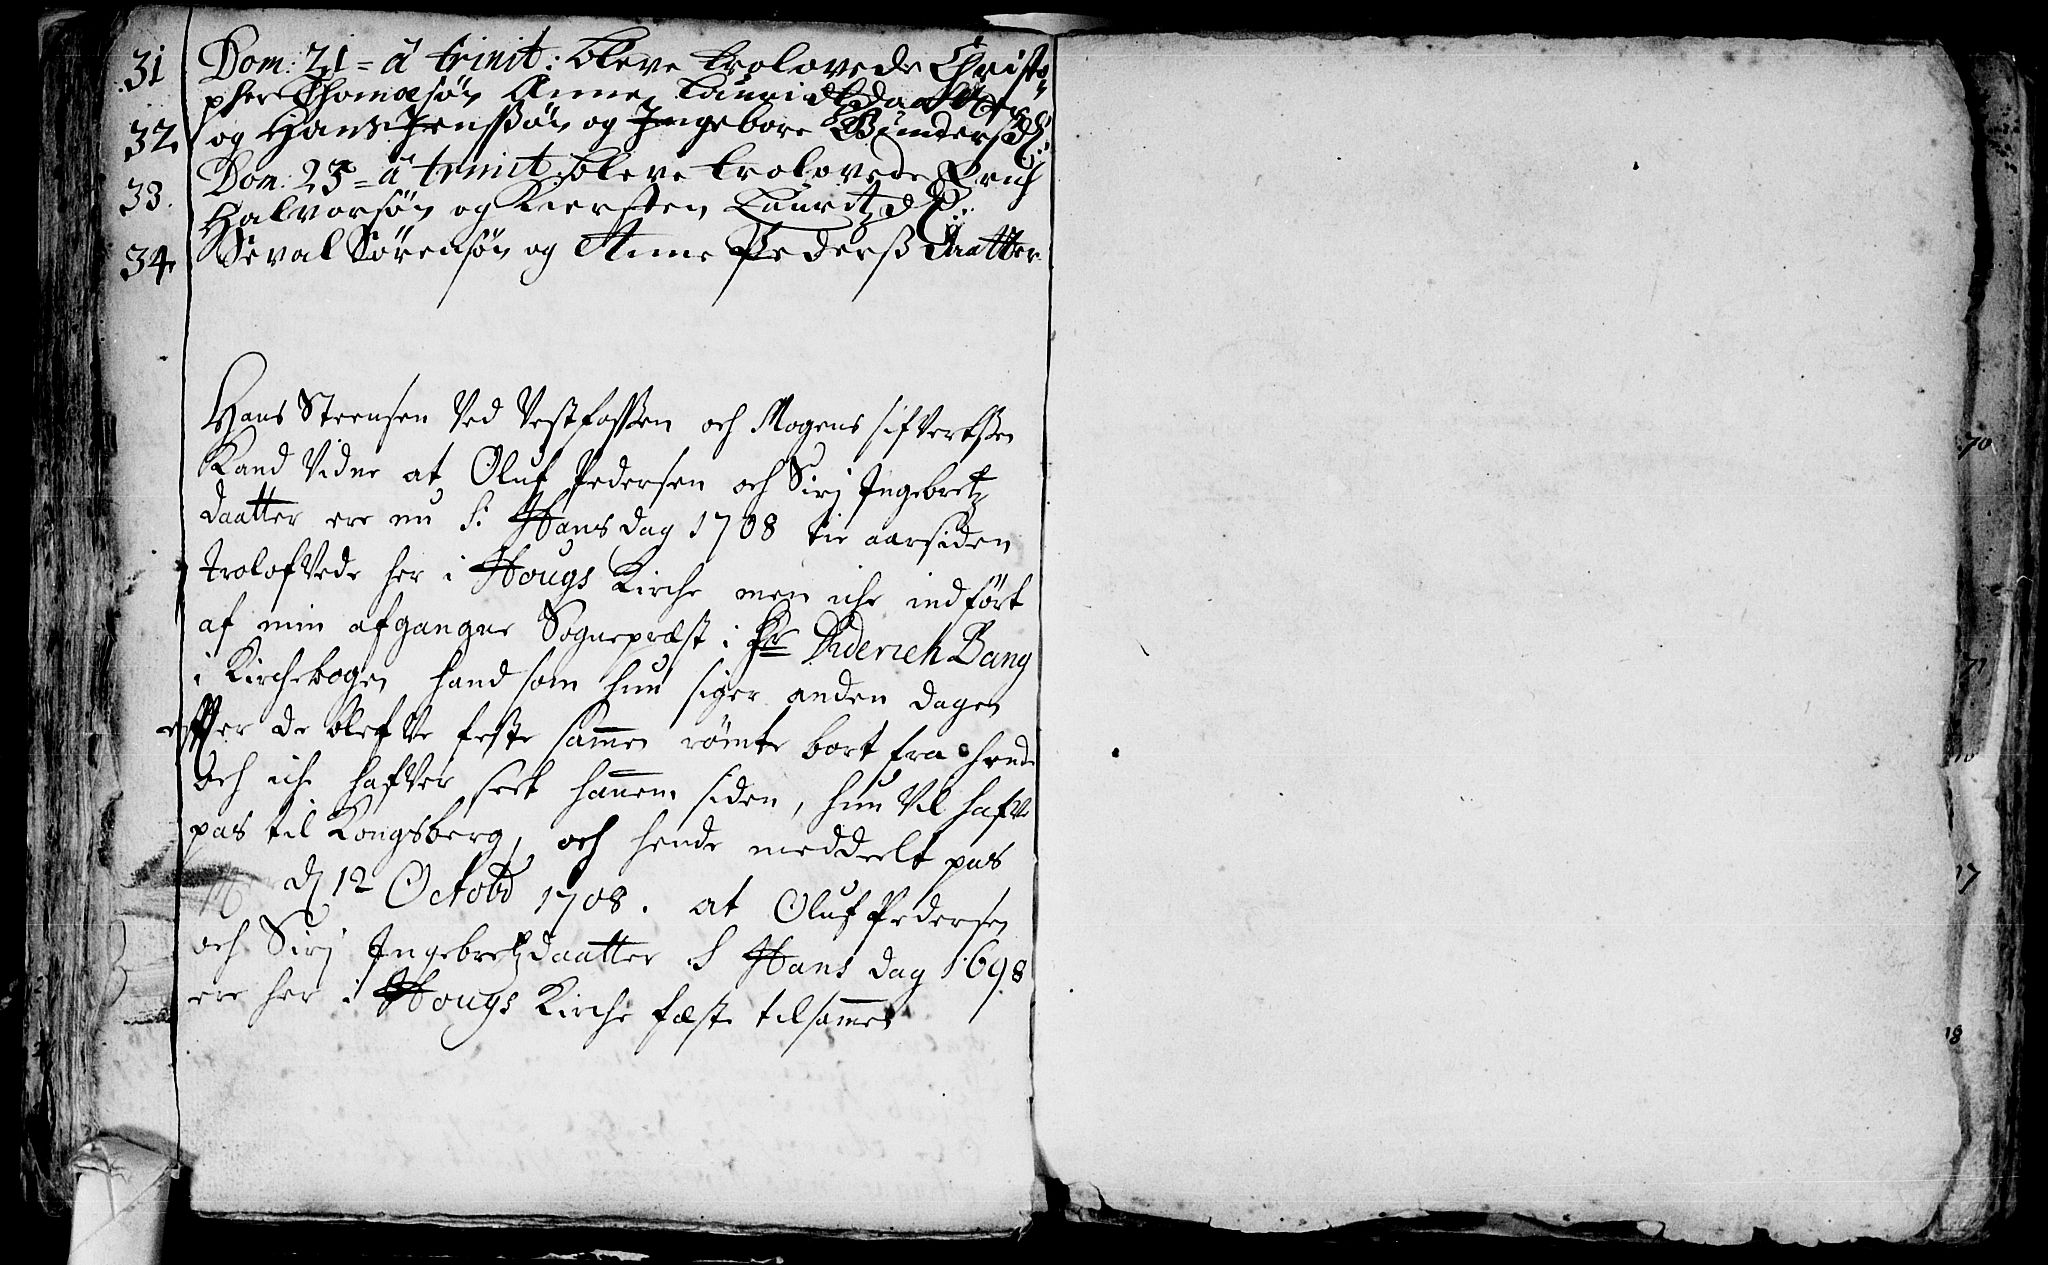 31 Dom: 21 = â trinit: bleve trolovede Christo-
pher Thomæsøn Anne Lauridtzdaatter
32. og Hans Jenssøn og Ingebore Gunders D:
Dom: 23 = â trinit: bleve trolovede Erich
33. Halvorsøn og Kiersten Lauritz D:
34. Seval Sørensøn og Anne Pederß Daatter.
Hans Steensen Ved Vestfossen och Mogens SifVertsen
Kand Vidne at Oluf Pedersen och Sirj Ingebretz
daatter ere nu S: Hans dag 1708 tie aarsiden
trolofVede her i Hougs Kirche men iche indført
af min afgangne Sognepræst i Hr Diderich Bang
i Kirchebogen hand som hun siger anden dagen
effter de blefVe feste sammen römte bort fra hende
Och iche hafVer seet hannem siden, hun Vil hafVe
pas til Kongsberg, och hende meddeelt pas
d 12 Octobr 1708. at Oluf Pedersen
och Sirj Ingebretzdaatter S Hans dag 1698
ere her i Hougs Kirche fæste tilsammen
70
71
10
17
18